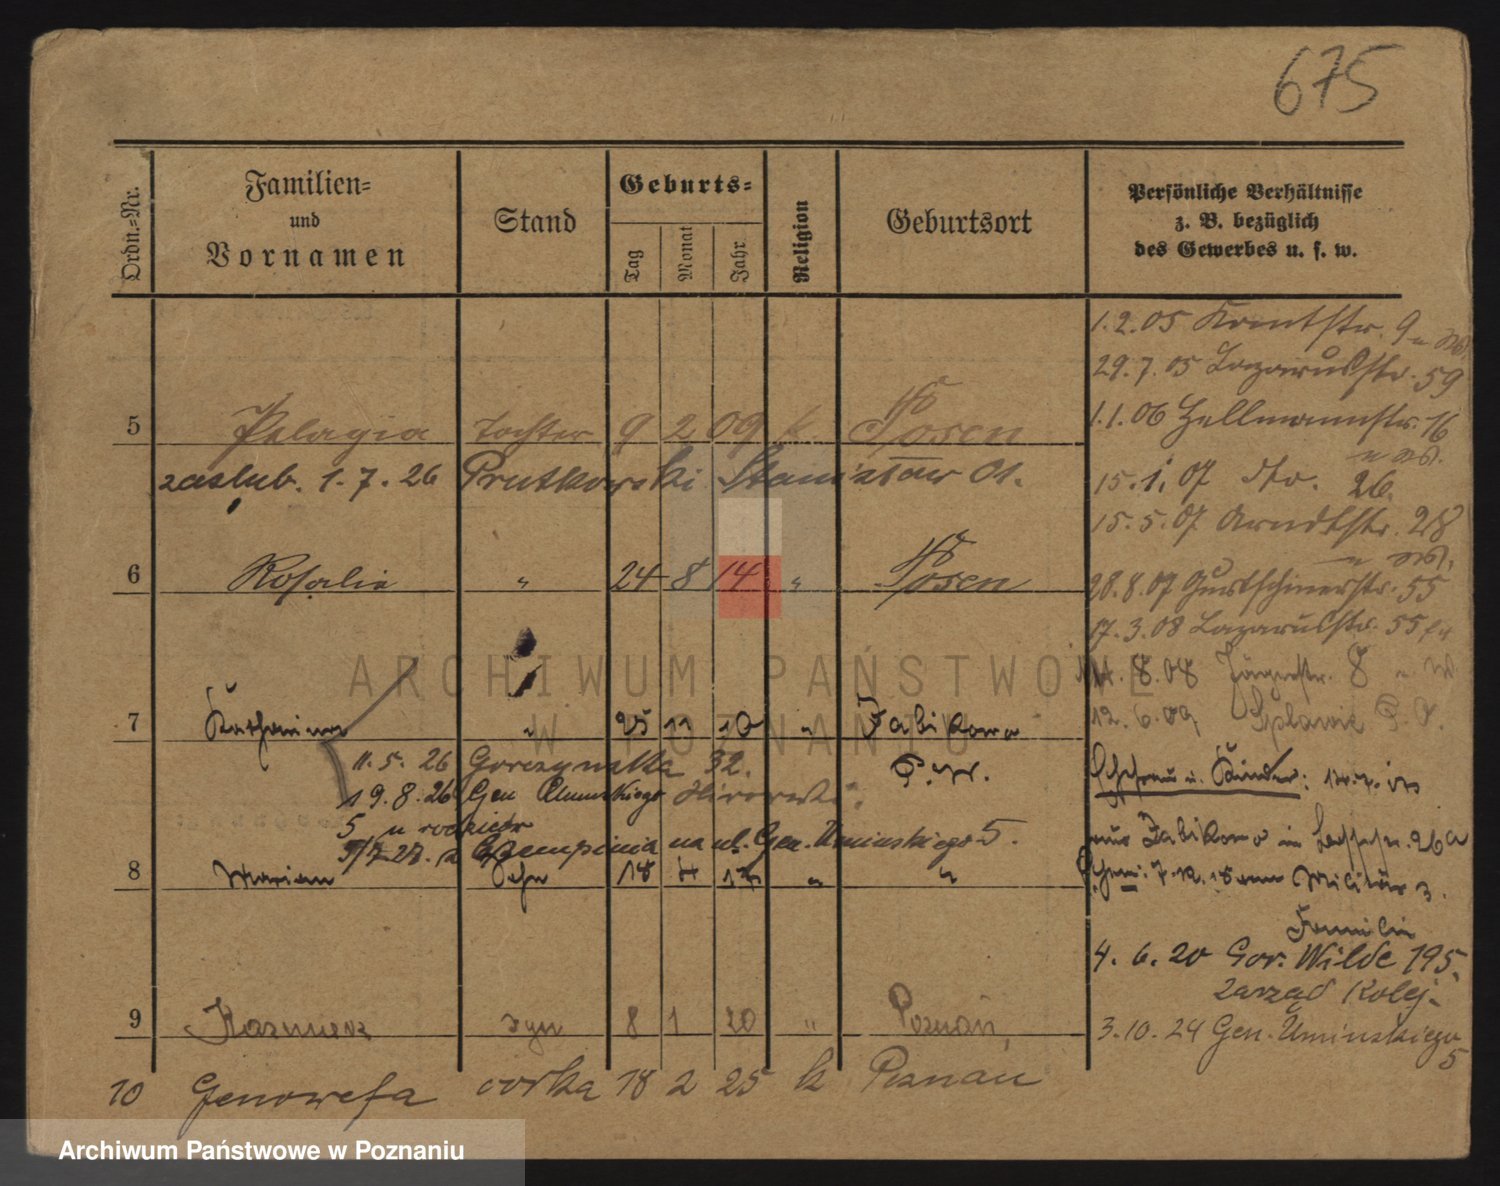 675
Ordn.=Nr.
Familien=
und
Vornamen
Stand
Geburts=
Tag
Monat
Jahr
Religion
Geburtsort
Persönliche Verhältnisse
z. B. bezüglich
des Gewerbes u. s. w.
5 Pelagia Tochter 9 2 09 k. Posen
zaślub. 1.7.26 Prutkowski Stanisław
6 Rosalie " 24 8 14 " Posen
7 Katharina " 25 11 10 " Zabikowo
P.W.
11.5.26 Gorczynska 32.
19.8.26 Gen Uminskiego
5 u rodziców
na ul. Gen. Uminskiego 5.
8 Marian Sohn 18 4 17 " "
9 Kazimierz syn 8 1 20 " Poznań
10 Genowefa córka 18 2 25 k Poznań
1.2.05 9
29.7.05 Lazarusstr. 59
1.1.06 Hellmannstr. 16
15.1.07 dto. 26.
15.5.07 Arndtstr. 28
28.8.07 Gurtschinerstr. 55
17.3.08 Lazarusstr. 55
11.8.08 8
12.6.09
Ehefrau u. Kinder:
aus Zabikowo in 26a
Militär z.
Familie
4.6.20 Gor. Wilde 195.
Zarząd Kolej.
3.10.24 Gen. Uminskiego
5
ARCHIWUM PAŃSTWOWE
W POZNANIU
Archiwum Państwowe w Poznaniu